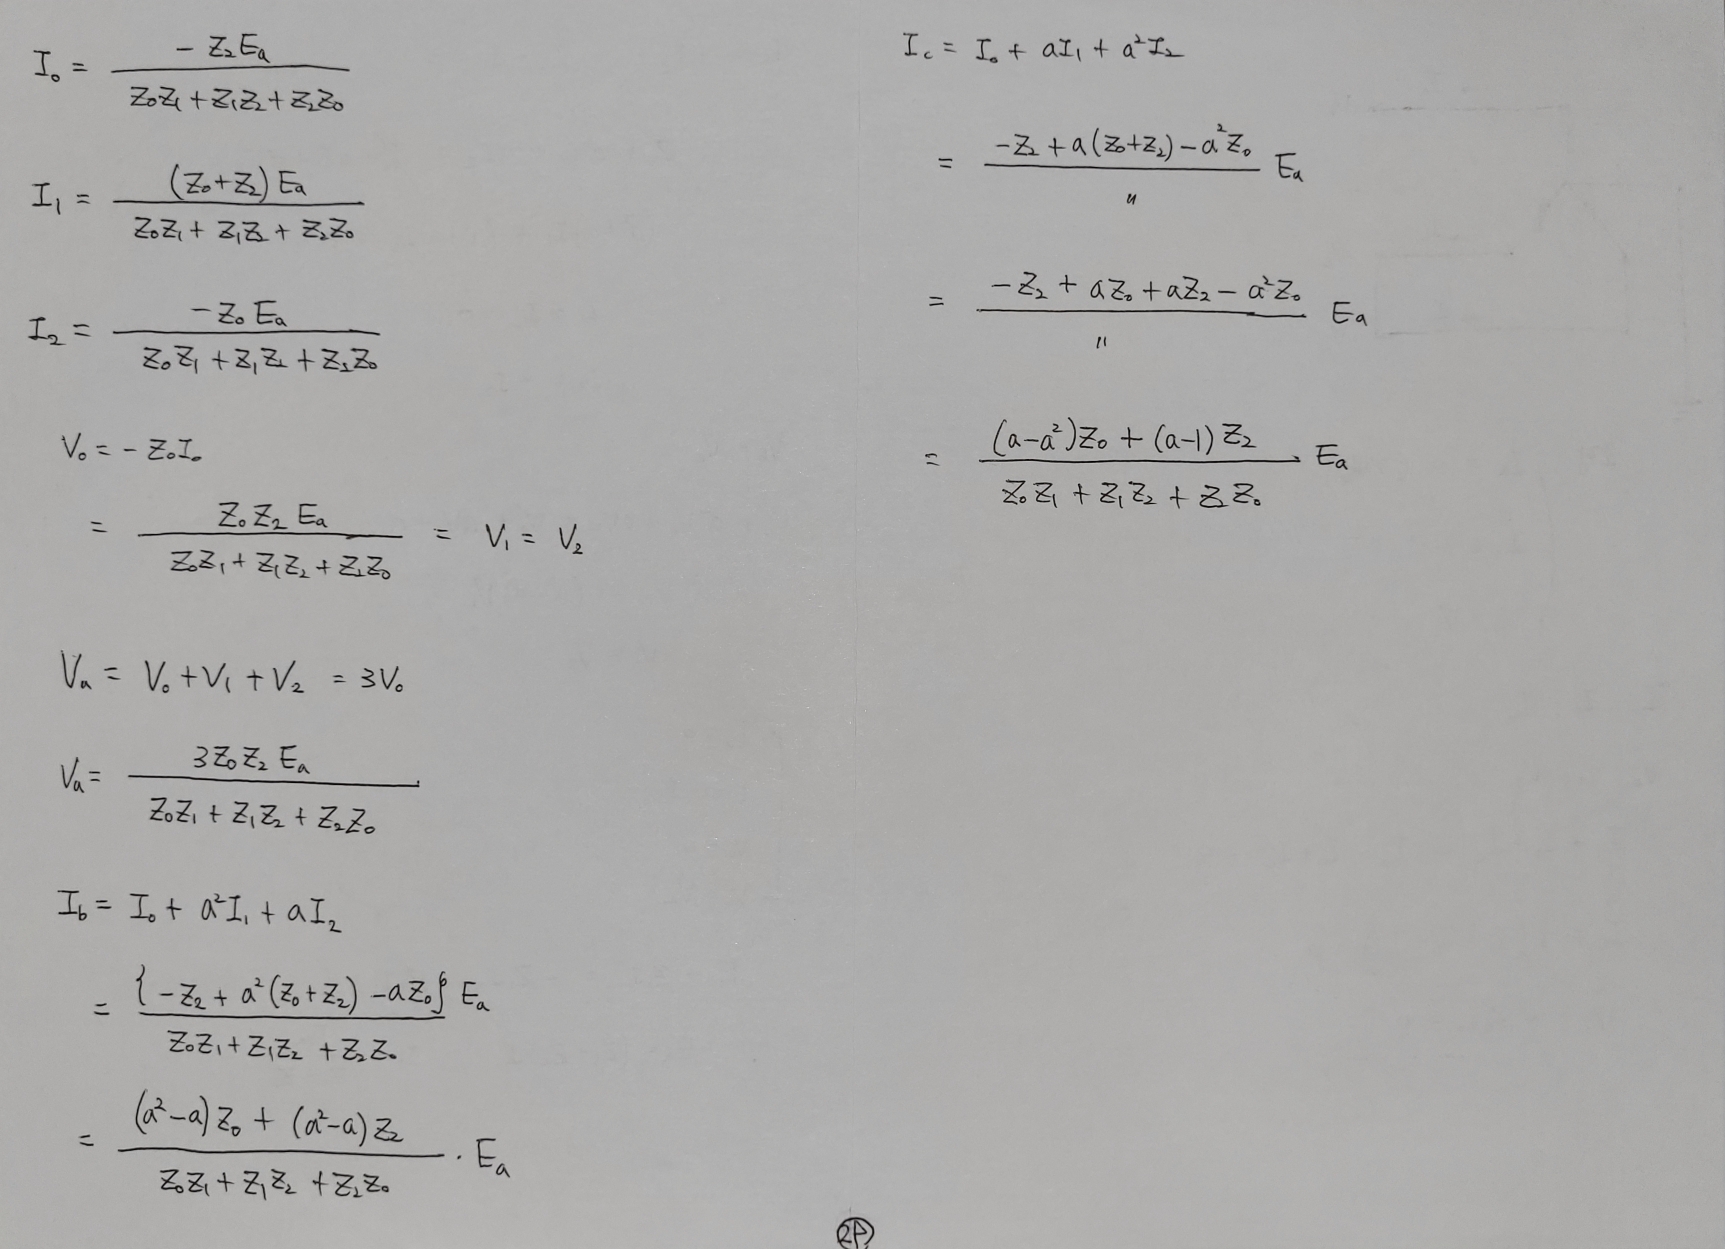 I₀ = -Z₂Ea / (Z₀Z₁ + Z₁Z₂ + Z₂Z₀)
I₁ = (Z₀+Z₂) Ea / (Z₀Z₁ + Z₁Z₂ + Z₂Z₀)
I₂ = -Z₀ Ea / (Z₀Z₁ + Z₁Z₂ + Z₂Z₀)
V₀ = - Z₀I₀
= Z₀Z₂ Ea / (Z₀Z₁ + Z₁Z₂ + Z₂Z₀) = V₁ = V₂
Va = V₀ + V₁ + V₂ = 3V₀
Va = 3Z₀Z₂ Ea / (Z₀Z₁ + Z₁Z₂ + Z₂Z₀)
Ib = I₀ + a²I₁ + aI₂
= {-Z₂ + a²(Z₀+Z₂) - aZ₀} Ea / (Z₀Z₁ + Z₁Z₂ + Z₂Z₀)
= (a²-a)Z₀ + (a²-a)Z₂ / (Z₀Z₁ + Z₁Z₂ + Z₂Z₀) · Ea
Ic = I₀ + aI₁ + a²I₂
= -Z₂ + a(Z₀+Z₂) - a²Z₀ / 〃 Ea
= -Z₂ + aZ₀ + aZ₂ - a²Z₀ / 〃 Ea
= (a-a²)Z₀ + (a-1)Z₂ / (Z₀Z₁ + Z₁Z₂ + Z₂Z₀) · Ea
2P